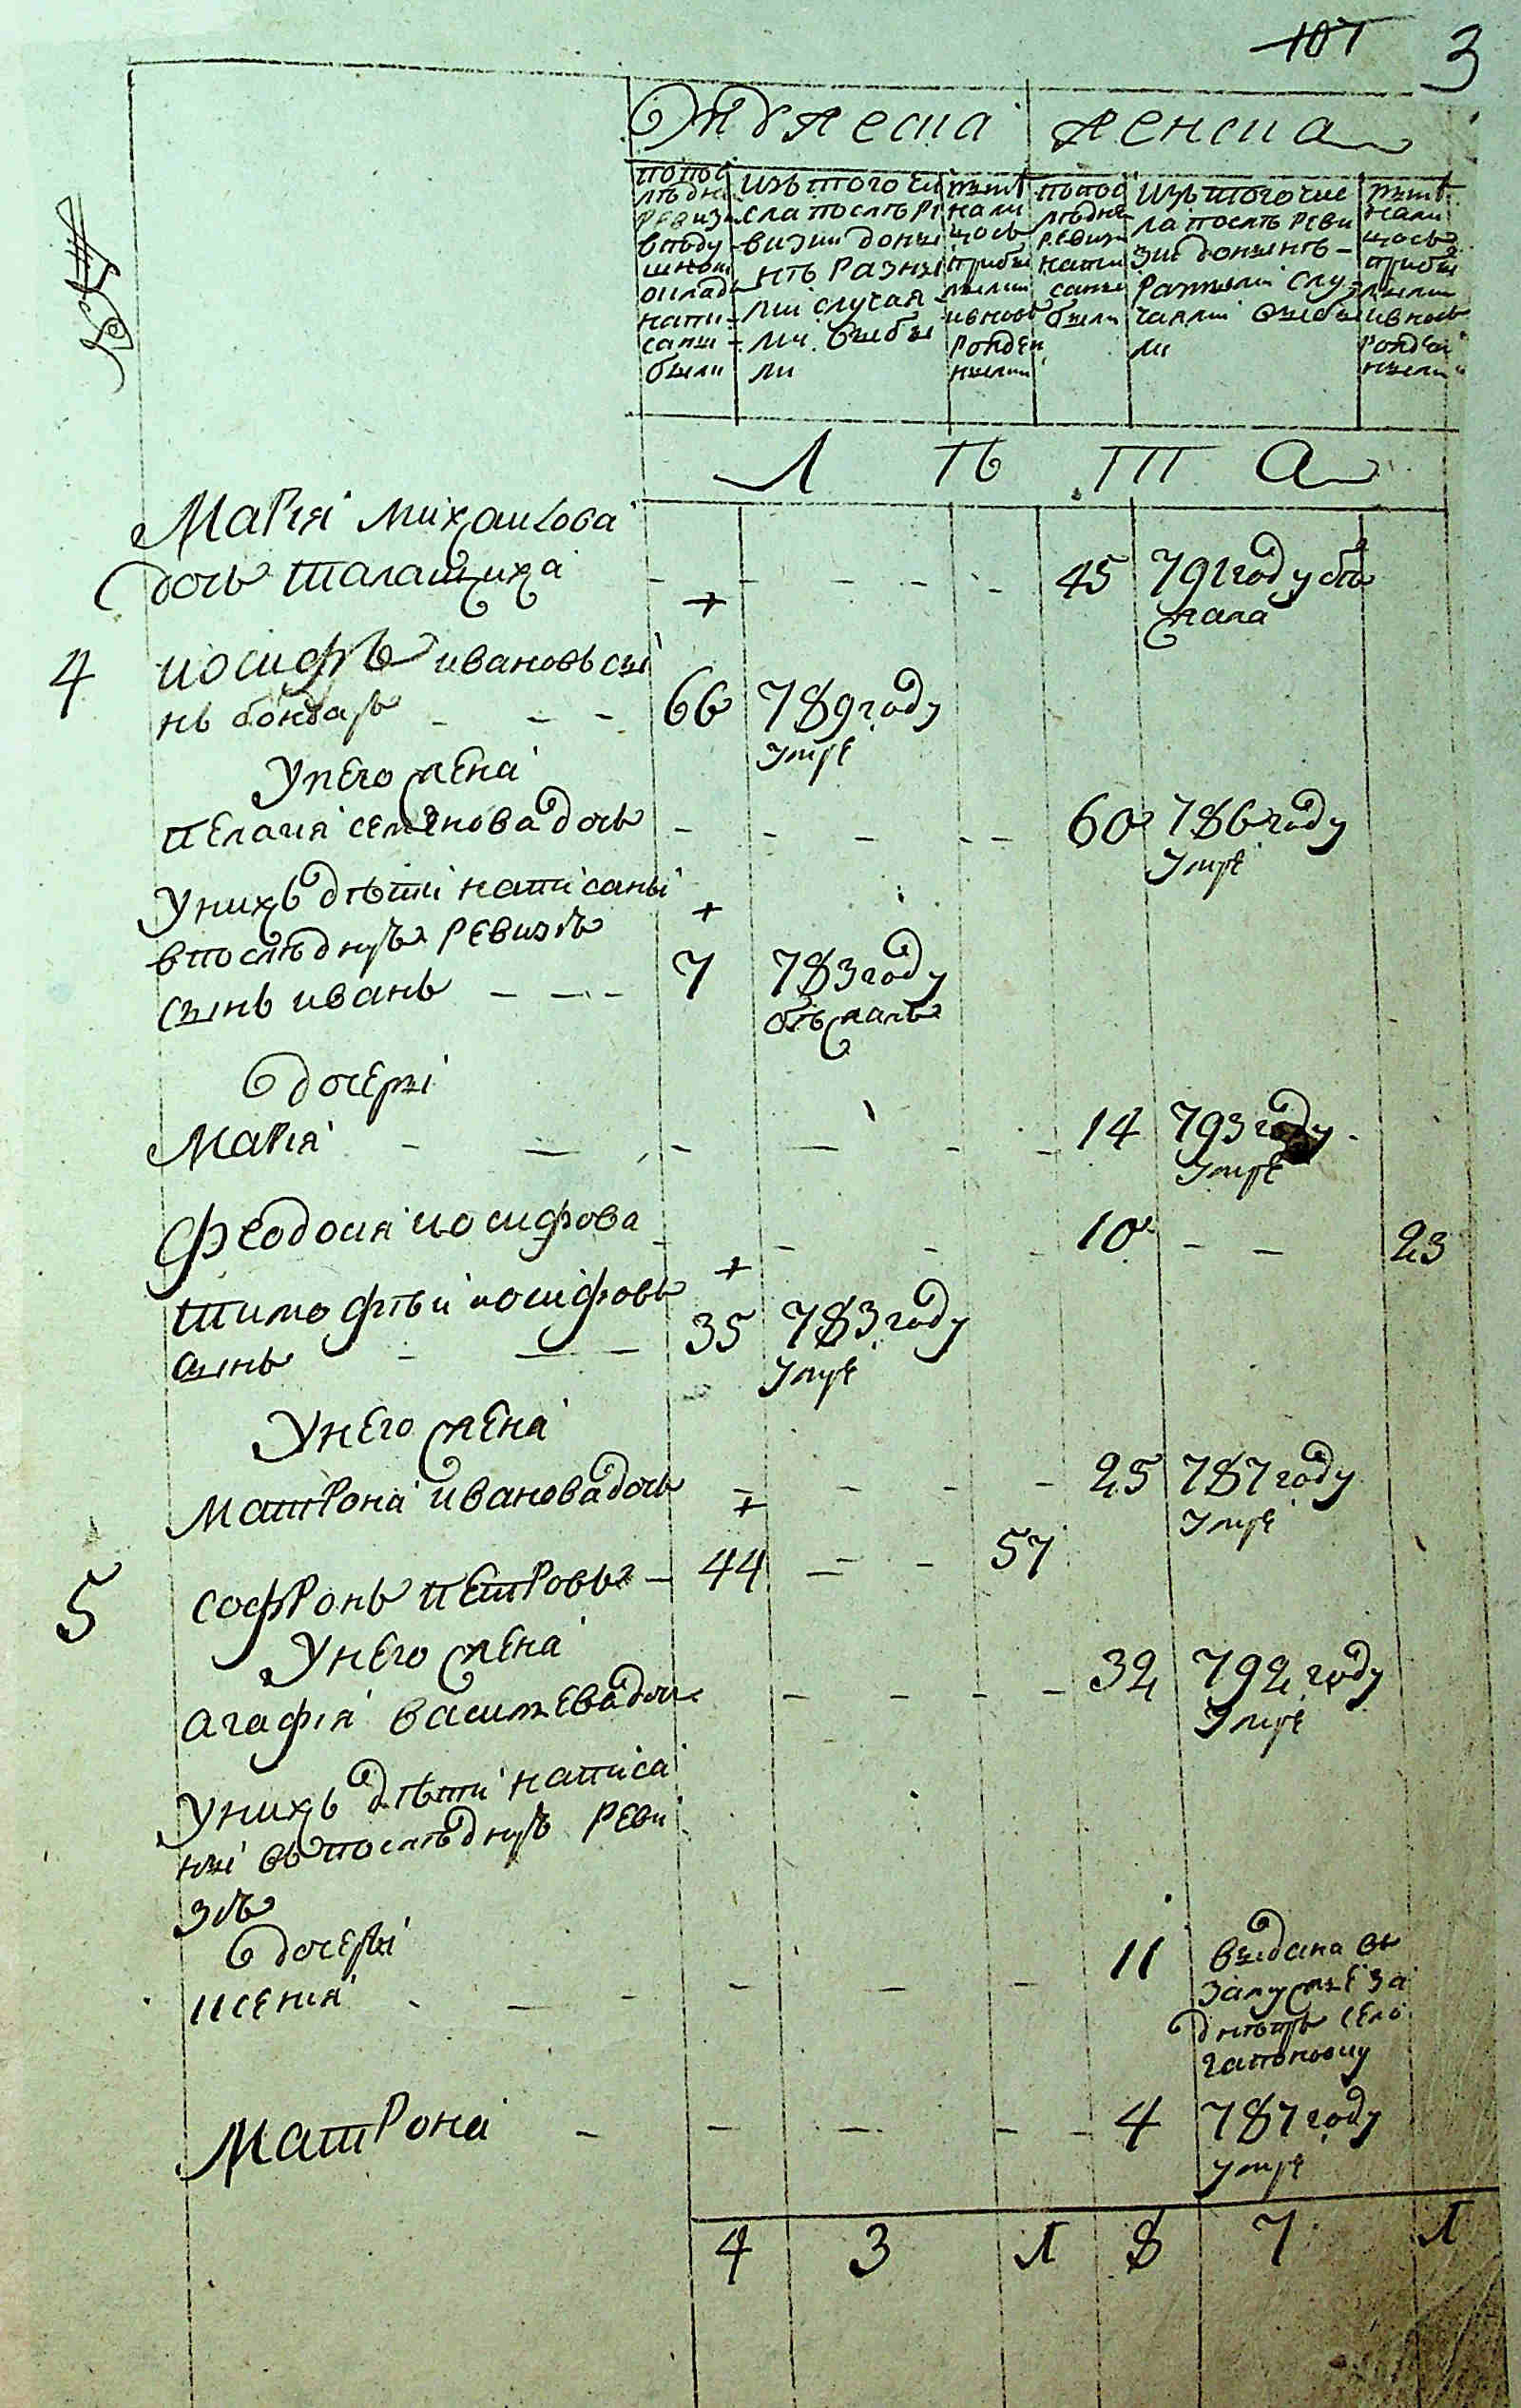 107 3
Мужеска женска
попос
лѣдне
ревизи
вподу
шном
окладѣ
напи
саны
были
изъ того чи
сла послѣ ре
визии доны
нѣ разны
ми случая
ми выбы
ли
нынѣ
нали
цось
прибы
лыми
ивновь
рожден
ными
попос
лѣдне
ревизи
напи
саны
были
изъ того чис
ла послѣ реви
зии донынѣ
разными слу
чаями выбы
ли
нынѣ
нали
цось
прибы
лыми
ивновь
рожден
ными
Л ѣ т а
Мария михаилова
дочь талащиха - - - - - 45 791 годуobѣ
жала
4 иосифъ ивановъ сы
нъ бондарь - - - 66 789 году
умре
Унего жена
пелагия семѣнова дочь - - - - - 60 786 году
умре
Унихъ дѣти написаны
впослѣднуъ ревизѣ
сынъ иванъ - - - 7 783 году
объжалъ
дочери
Мария - - - - - - 14 793 году
умре
Феодосия иосифова - - - - 10 - - 23
тимофѣй иосифовъ
сынъ - - - 35 783 году
умре
Унего жена
матрона иванова дочь - - - - 25 787 году
умре
5 софронъ петровъ - 44 - - 57
Унего жена
агафия василева дочь - - - - 32 792 году
умре
Унихъ дѣти написа
ны въ послѣднуъ реви
зѣ
дочери
ксения - - - - - - 11 выдана въ
замужье за
днѣпръ село
гапоновку
Матрона - - - - - 4 787 году
умре
4 3 1 8 7 1